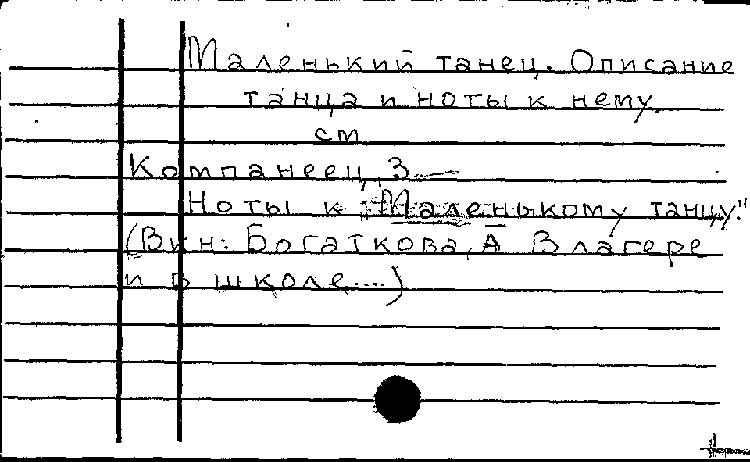 Маленький танец. Описание
танца и ноты к нему
см
Компанеец, З.—
Ноты к "Маленькому танцу."
(В кн: Богаткова, А В лагере
и в школе....)